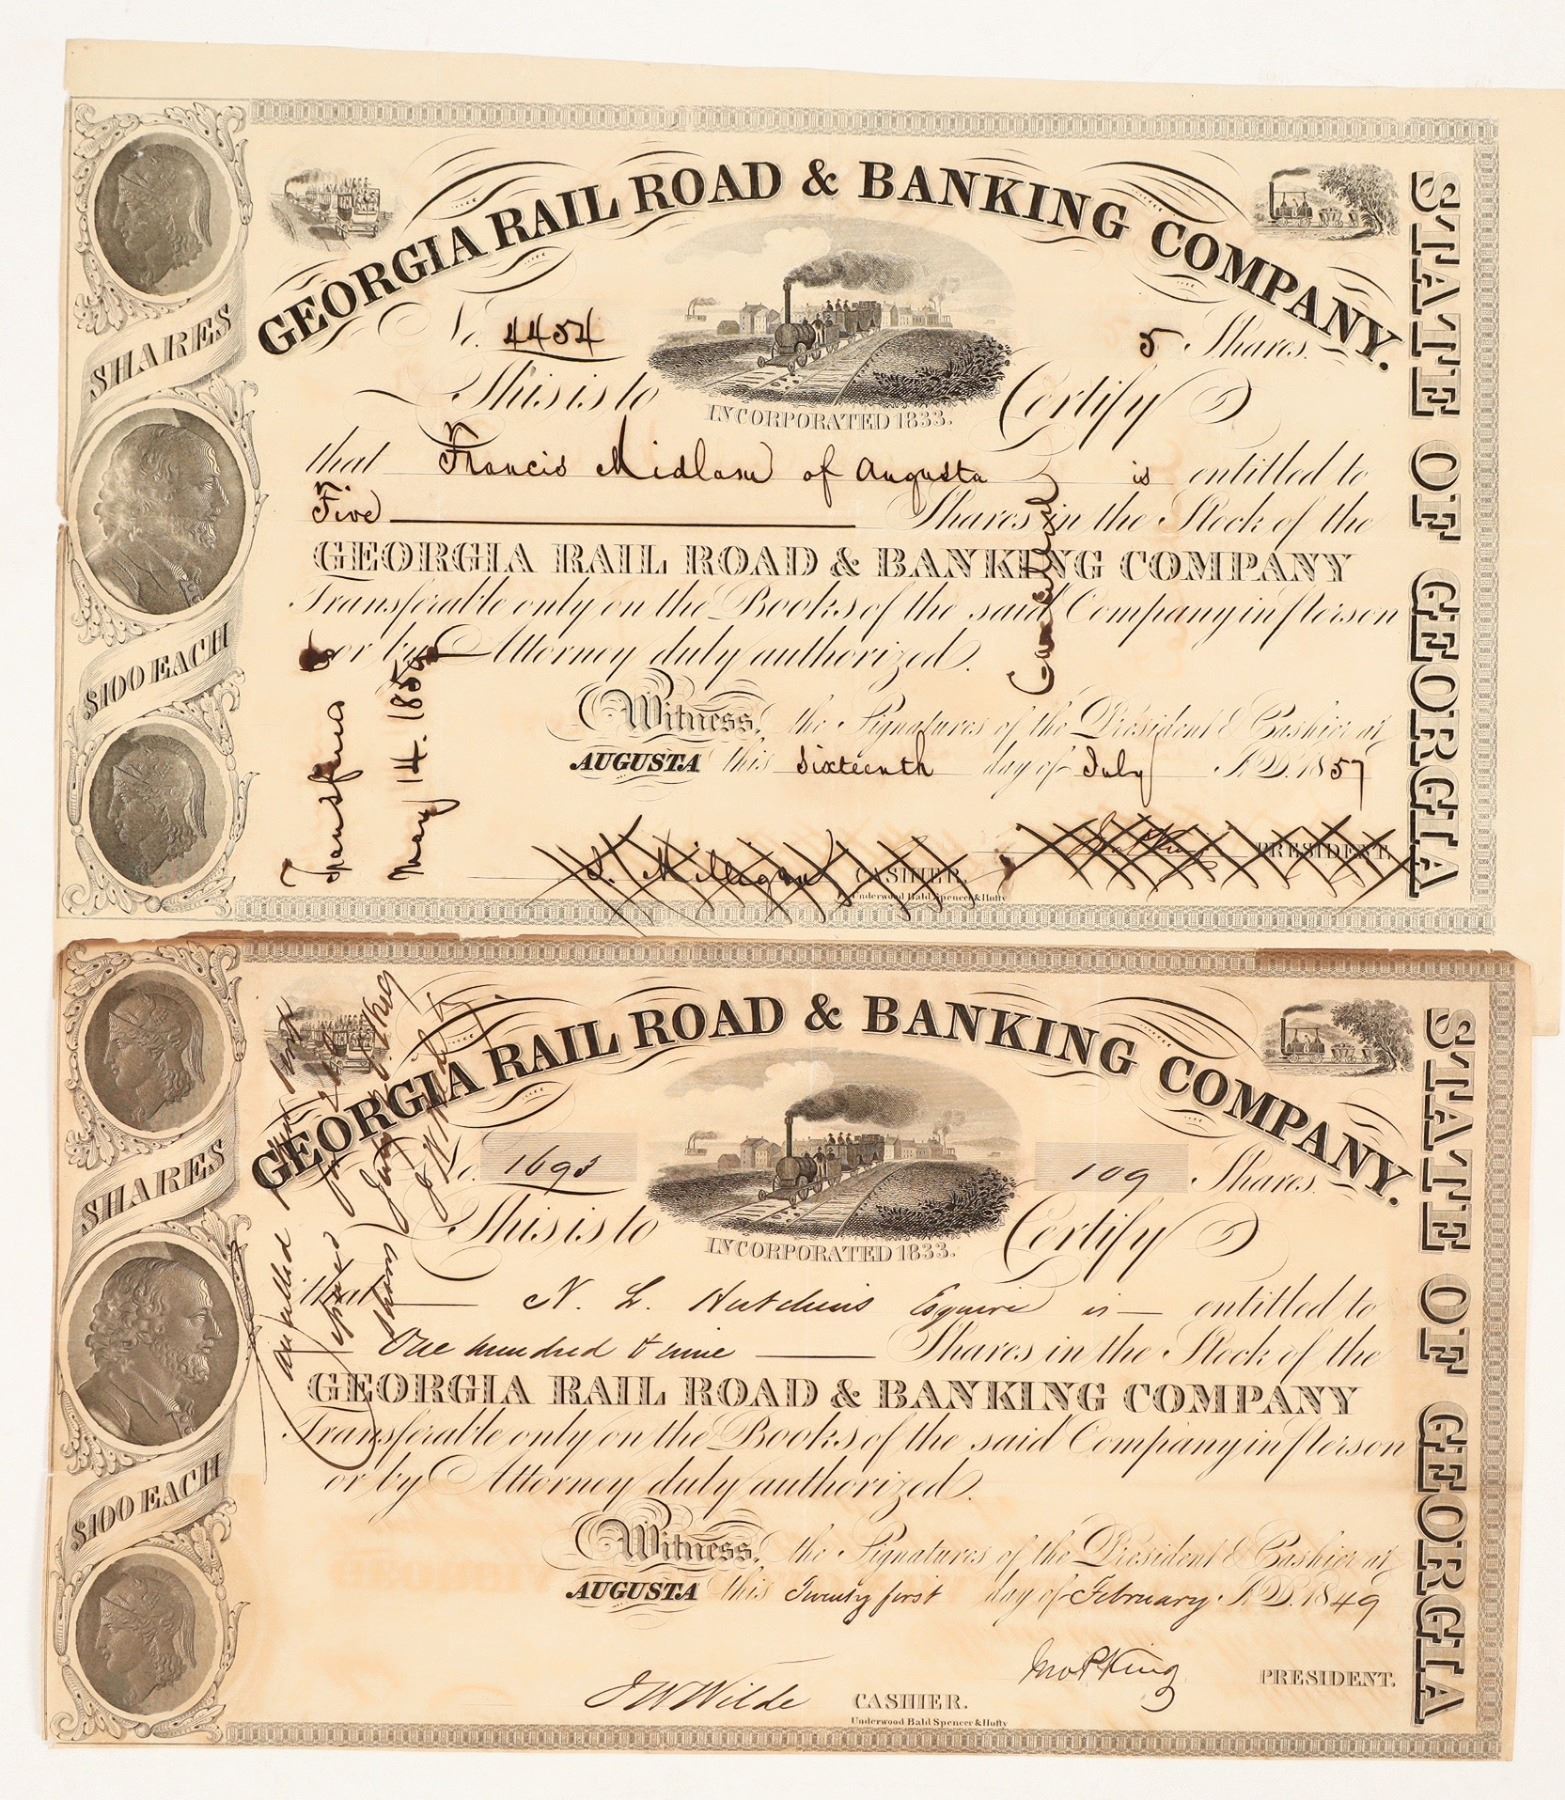 GEORGIA RAIL ROAD & BANKING COMPANY.
No. 4454
5 Shares.
This is to Certify
INCORPORATED 1833.
that Francis Midlam of Augusta is entitled to
Five Shares in the Stock of the
GEORGIA RAIL ROAD & BANKING COMPANY
Transferable only on the Books of the said Company in person
or by Attorney duly authorized.
Witness, the Signatures of the President & Cashier at
AUGUSTA this Sixteenth day of July A.D. 1857
J. Milligan CASHIER.
PRESIDENT.
Underwood Bald Spencer & Hufty
SHARES
$100 EACH
STATE OF GEORGIA
Cancelled
May 14. 185
GEORGIA RAIL ROAD & BANKING COMPANY.
No. 1693
109 Shares.
This is to Certify
INCORPORATED 1833.
that N. L. Hutchins Esquire is entitled to
One hundred & nine Shares in the Stock of the
GEORGIA RAIL ROAD & BANKING COMPANY
Transferable only on the Books of the said Company in person
or by Attorney duly authorized.
Witness, the Signatures of the President & Cashier at
AUGUSTA this Twenty first day of February A.D. 1849
Jno P King PRESIDENT.
J W Wilde CASHIER.
Underwood Bald Spencer & Hufty
SHARES
$100 EACH
STATE OF GEORGIA